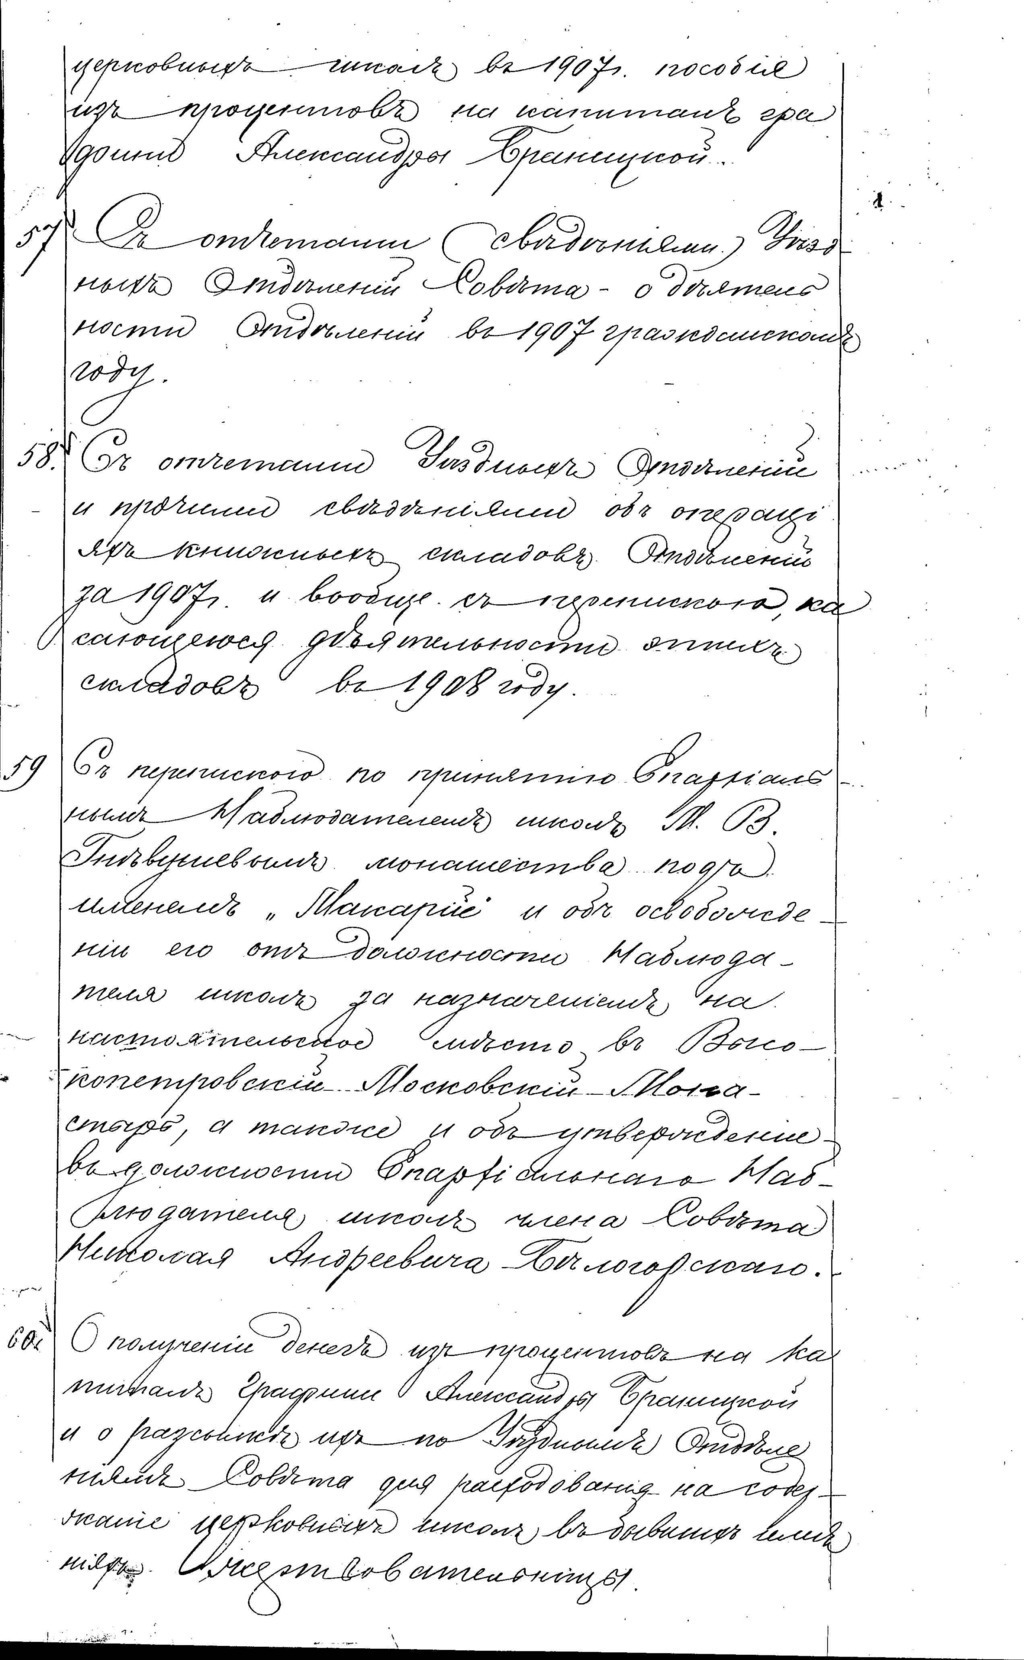 церковныхъ школъ въ 1907г. пособія
изъ процентовъ на капиталъ гра
фини Александры Браницкой.
57 Съ отчетами (свѣдѣніями) Уѣзд
ныхъ Отдѣленій Совѣта - о дѣятель
ности Отдѣленій въ 1907 гражданскомъ
году.
58. Съ отчетами Уѣздныхъ Отдѣленій
и прочими свѣдѣніями объ операці
яхъ книжныхъ складовъ Отдѣленій
за 1907г. и вообще съ перепискою, ка
сающеюся дѣятельности этихъ
складовъ въ 1908 году.
59 Съ перепискою по принятію Епархіаль
нымъ Наблюдателемъ школъ М. В.
Гнѣвушевымъ монашества подъ
именемъ „Макарій" и объ освобожде
ніи его отъ должности Наблюда-
теля школъ за назначеніемъ на
настоятельское мѣсто въ Высо-
копетровскій Московскій Мона-
стырь, а также и объ утвержденіе
въ должности Епархіальнаго Наб-
людателя школъ члена Совѣта
Николая Андреевича Бѣлогорскаго.
60. О полученіи денегъ изъ процентовъ на ка
питалъ Графини Александры Браницкой
и о разсылкѣ ихъ по Уѣзднымъ Отдѣле
ніямъ Совѣта для расходованія на содер-
жаніе церковныхъ школъ въ бывшихъ имѣ
ніяхъ жертвовательницы.